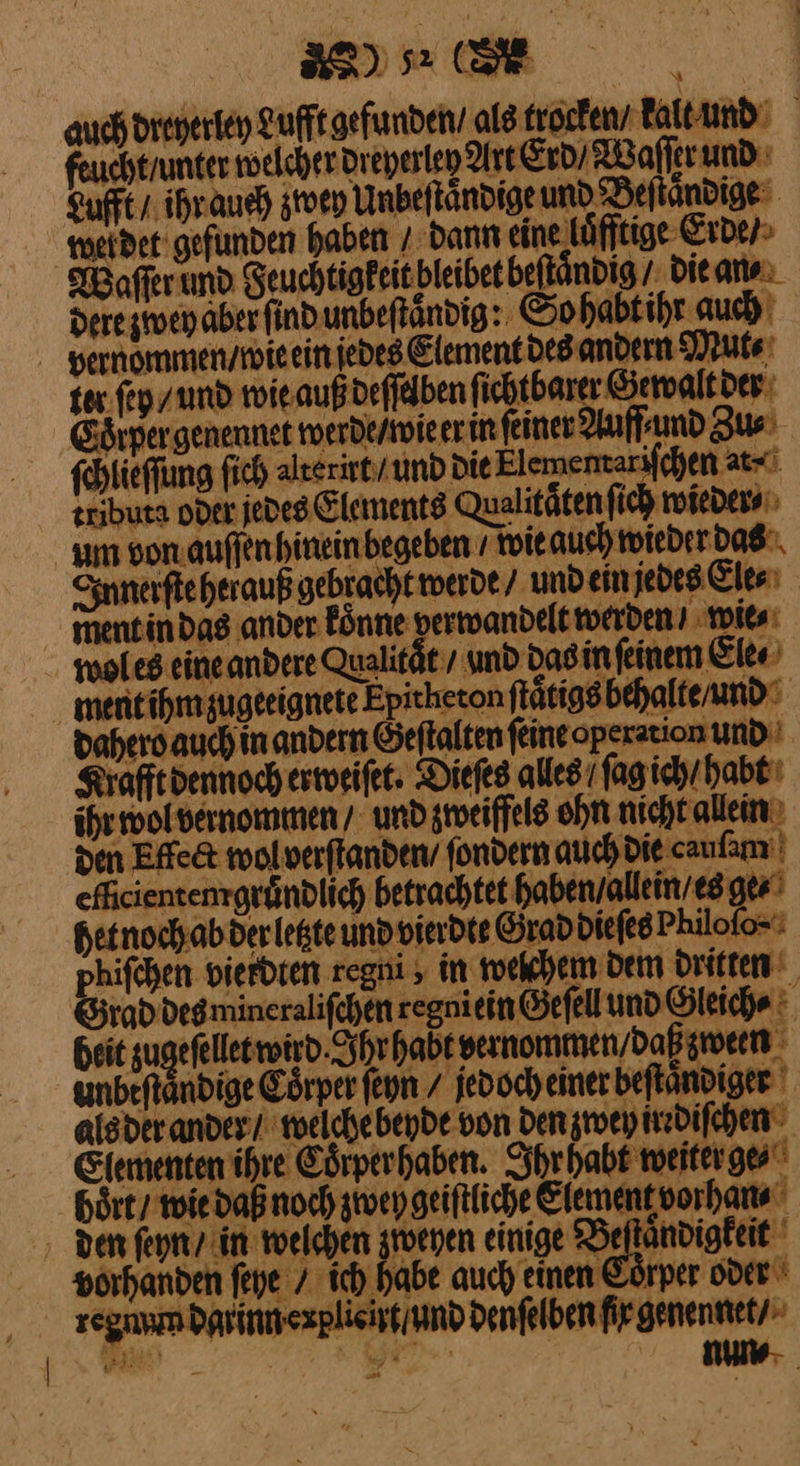 ) 52 (
auch dreyerley Lufft gefunden/ als trocken/ kalt und
feucht/unter welcher dreyerley Art Erd/ Waſſer und
Lufft / ihr auch zwey Unbeſtaͤndige und Beſtaͤndige
werdet gefunden haben / dann eine luͤfftige Erde/
Waſſer und Feuchtigkeit bleibet beſtaͤndig / die an⸗
dere zwey aber ſind unbeſtaͤndig: So habt ihr auch
vernommen/wie ein jedes Element des andern Mut⸗
ter ſey / und wie auß deſſelben ſichtbarer Gewalt der
Coͤrper genennet werde/wie er in ſeiner Auff⸗und Zu⸗
ſchlieſſung ſich alterirt / und die Elementariſchen at⸗
tributa oder jedes Elements Qualitaͤten ſich wieder⸗
um von auſſen hinein begeben / wie auch wieder das
Innerſte herauß gebracht werde / und ein jedes Ele⸗
ment in das ander koͤnne verwandelt werden / wie⸗
wol es eine andere Qualitaͤt / und das in ſeinem Ele⸗
ment ihm zugeeignete Epitheton ſtaͤtigs behalte/und
dahero auch in andern Geſtalten ſeine operation und
Krafft dennoch erweiſet. Dieſes alles / ſag ich/ habt
ihr wol vernommen / und zweiffels ohn nicht allein
den Effect wol verſtanden/ ſondern auch die cauſam
efficientem gruͤndlich betrachtet haben/allein/es ge⸗
het noch ab der letzte und vierdte Grad dieſes Philoſo⸗
phiſchen vierdten regni, in welchem dem dritten
Grad des mineraliſchen regni ein Geſell und Gleich⸗
heit zugeſellet wird. Ihr habt vernommen/daß zween
unbeſtaͤndige Coͤrper ſeyn / jedoch einer beſtaͤndiger
als der ander / welche beyde von den zwey irrdiſchen
Elementen ihre Coͤrper haben. Ihr habt weiter ge⸗
hoͤrt / wie daß noch zwey geiſtliche Element vorhan⸗
den ſeyn / in welchen zweyen einige Beſtaͤndigkeit
vorhanden ſeye / ich habe auch einen Coͤrper oder
regnum darinn explicirt/und denſelben fix genennet/
nun⸗